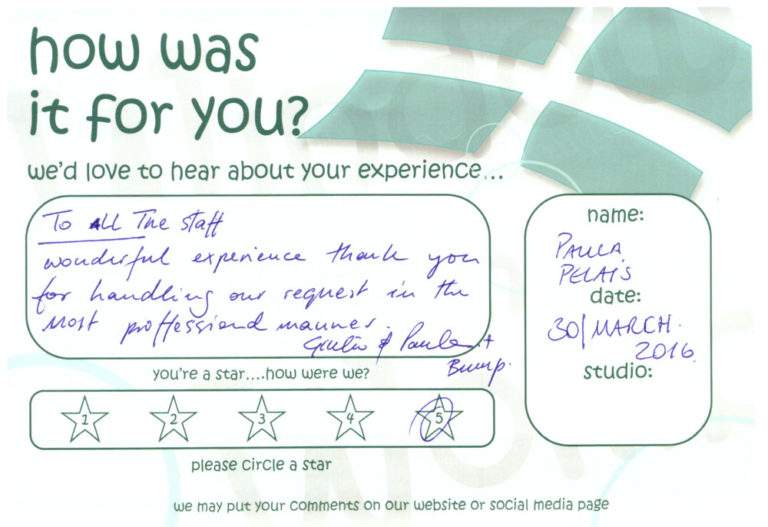 how was
it for you?
we'd love to hear about your experience...
To All The staff
wonderful experience thank you
for handling our request in the
Most proffessional manner.
Giulio & Paula +
Bump.
name:
PAULA
PELAIS
date:
30/MARCH.
2016
studio:
you're a star....how were we?
1 2 3 4 5
please circle a star
we may put your comments on our website or social media page